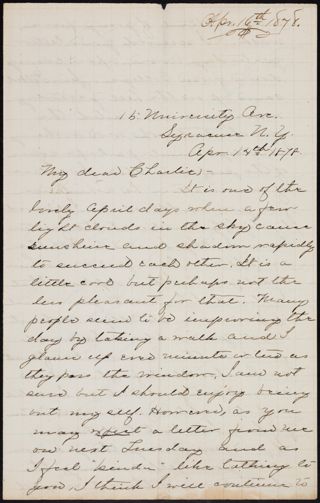 Apr. 16th 1878.
15 University Ave.
Syracuse N. Y.
Apr. 14th 1878.
My dear Charlie,-
It is one of the
lovely April days when a few
light clouds in the sky cause
sunshine and shadow rapidly
to succeed each other. It is a
little cool but perhaps not the
less pleasant for that. Many
people seem to be improving the
day by taking a walk and I
glance up every minute or less as
they pass the window, I am not
sure but I should enjoy being
out my self. However, as you
may expect a letter from me
on next Tuesday and as
I feel "kinder" like talking to
you, I think I will continue to